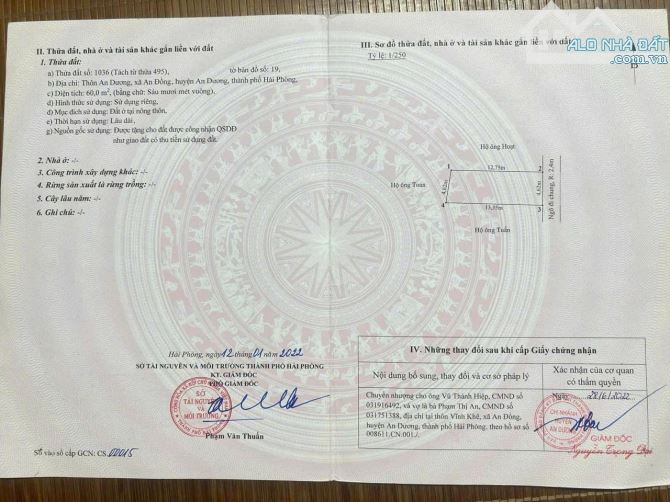 ALO NHÀ ĐẤT
II. Thửa đất, nhà ở và tài sản khác gắn liền với đất
1. Thửa đất:
a) Thửa đất số: 1036 (Tách từ thửa 495), tờ bản đồ số: 19,
b) Địa chỉ: Thôn An Dương, xã An Đồng, huyện An Dương, thành phố Hải Phòng,
c) Diện tích: 60,0 m², (bằng chữ: Sáu mươi mét vuông),
d) Hình thức sử dụng: Sử dụng riêng,
đ) Mục đích sử dụng: Đất ở tại nông thôn,
e) Thời hạn sử dụng: Lâu dài,
g) Nguồn gốc sử dụng: Được tặng cho đất được công nhận QSDĐ
như giao đất có thu tiền sử dụng đất.
2. Nhà ở: -/-
3. Công trình xây dựng khác: -/-
4. Rừng sản xuất là rừng trồng: -/-
5. Cây lâu năm: -/-
6. Ghi chú: -/-
Hải Phòng, ngày 12 tháng 01 năm 2022
SỞ TÀI NGUYÊN VÀ MÔI TRƯỜNG THÀNH PHỐ HẢI PHÒNG
KT. GIÁM ĐỐC
PHÓ GIÁM ĐỐC
SỞ
TÀI NGUYÊN
VÀ
MÔI TRƯỜNG
Phạm Văn Thuấn
Số vào sổ cấp GCN: CS 00015
III. Sơ đồ thửa đất, nhà ở và tài sản khác gắn liền với đất
Tỷ lệ: 1/250
B
Hộ ông Hoạt
1 12,75m 2
Hộ ông Toàn
4,62m
4,62m
Ngõ đi chung, R: 2,4m
4 13,35m 3
Hộ ông Tuấn
IV. Những thay đổi sau khi cấp Giấy chứng nhận
Nội dung bổ sung, thay đổi và cơ sở pháp lý
Xác nhận của cơ quan
có thẩm quyền
Chuyển nhượng cho ông Vũ Thành Hiệp, CMND số
031916492, và vợ là bà Phạm Thị An, CMND số
031751388, địa chỉ tại thôn Vĩnh Khê, xã An Đồng,
huyện An Dương, thành phố Hải Phòng, theo hồ sơ số
008611.CN.001./.
Ngày 28/6/2022
CHI NHÁNH
HUYỆN
AN DƯƠNG
GIÁM ĐỐC
Nguyễn Trọng Đại